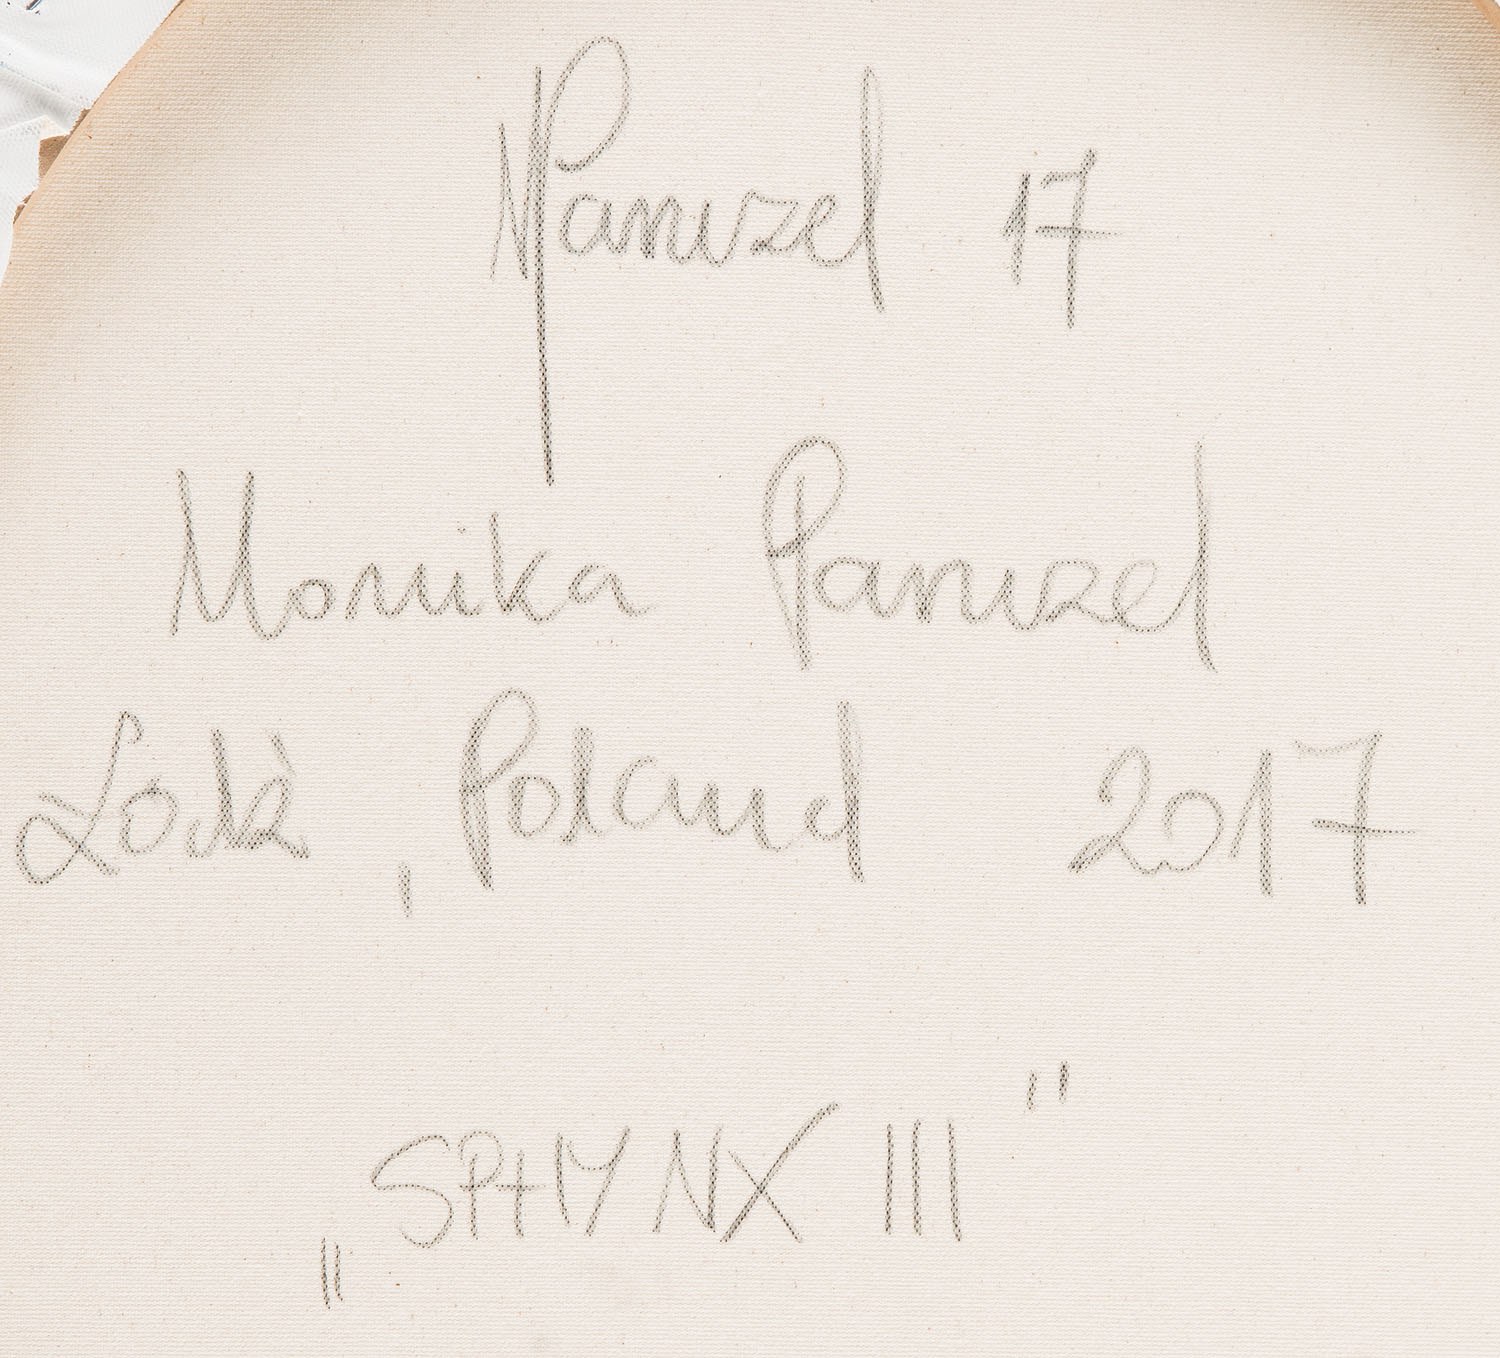 MPanuzel 17
Monika Panuzel
Łódź, Poland 2017
„SPHYNX III"